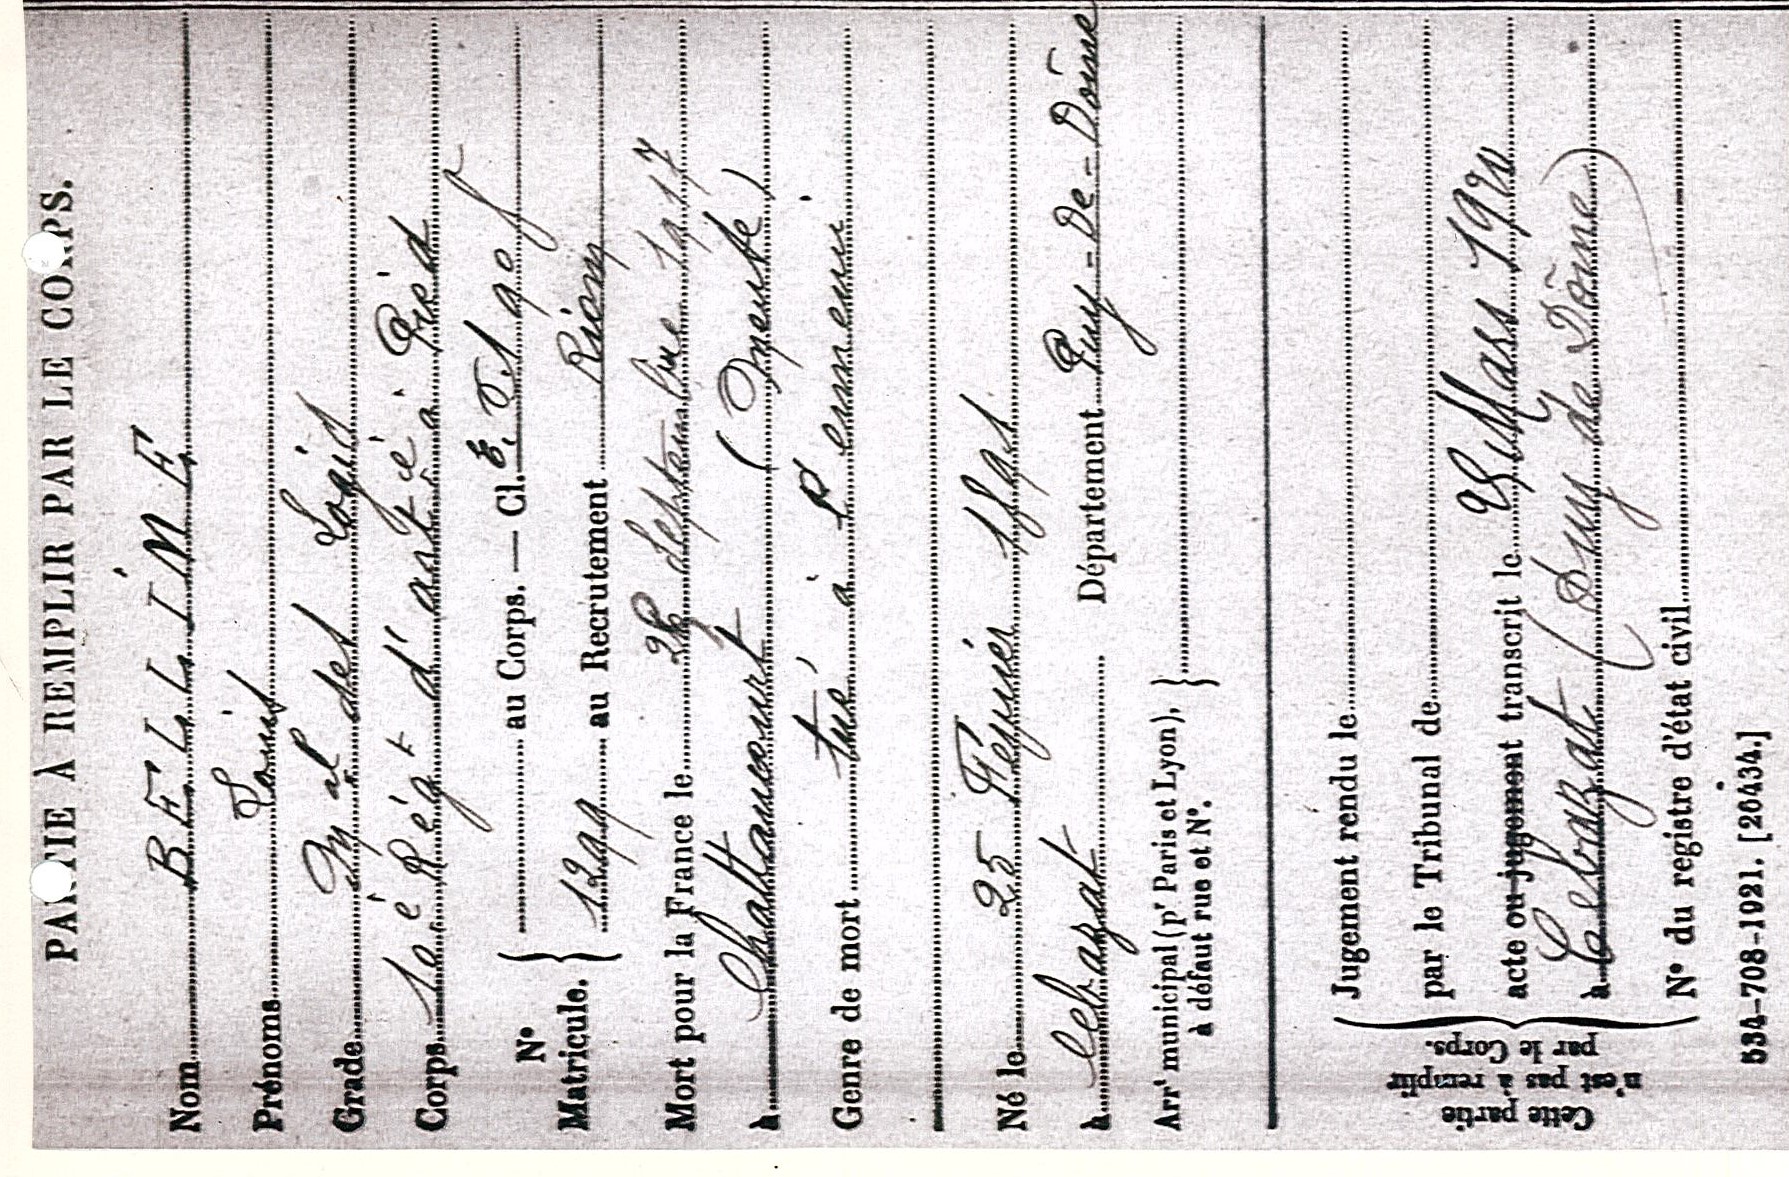 PARTIE À REMPLIR PAR LE CORPS.
Nom BELLIME
Prénoms Louis
Grade Mal des Logis
Corps Régt d'art à Pied
N° Matricule. { au Corps. — Cl.
1299 au Recrutement Riom
Mort pour la France le 28 septembre 1917
à Chattancourt (Meuse)
Genre de mort tué à l'ennemi
Né le 25 Février
à Cebazat Département Puy-De-Dôme
Arrt municipal (pr Paris et Lyon), à défaut rue et N°. }
Cette partie n'est pas à remplir par le Corps.
Jugement rendu le
par le Tribunal de
acte ou jugement transcrit le Mars
à Cebazat (Puy de Dôme)
N° du registre d'état civil
534-708-1921. [26434.]